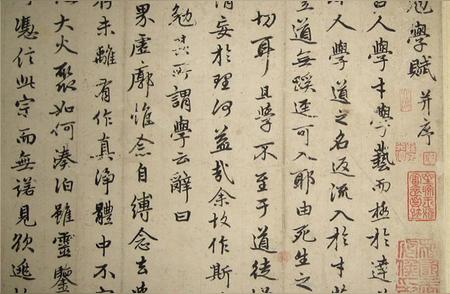 勉學賦并序
人學才學藝而極於達
人學道之名返流入於才
道無蹊逕可入耶由死生之
切耳且學不至于道徒
妄於理何益哉余故作斯
勉其所謂學云辭曰
界虛廓惟念自縛念去
未離有作真淨體中不
大火聚如何湊泊雖靈鑒
憑信此宗而無諾見欲